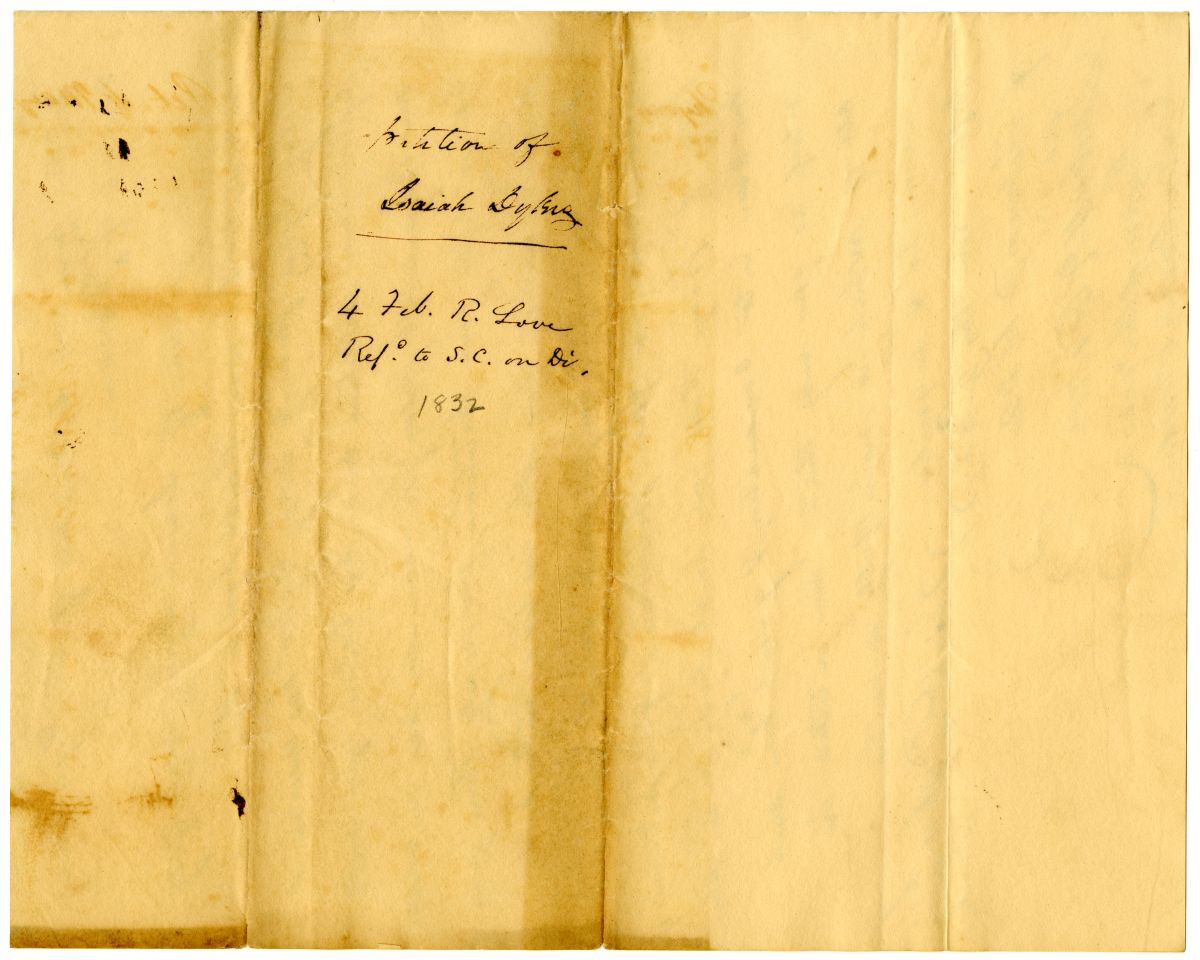 Petition of
Isaiah
4 Feb. R. Love
Refd. to S. C. on Di.
1832